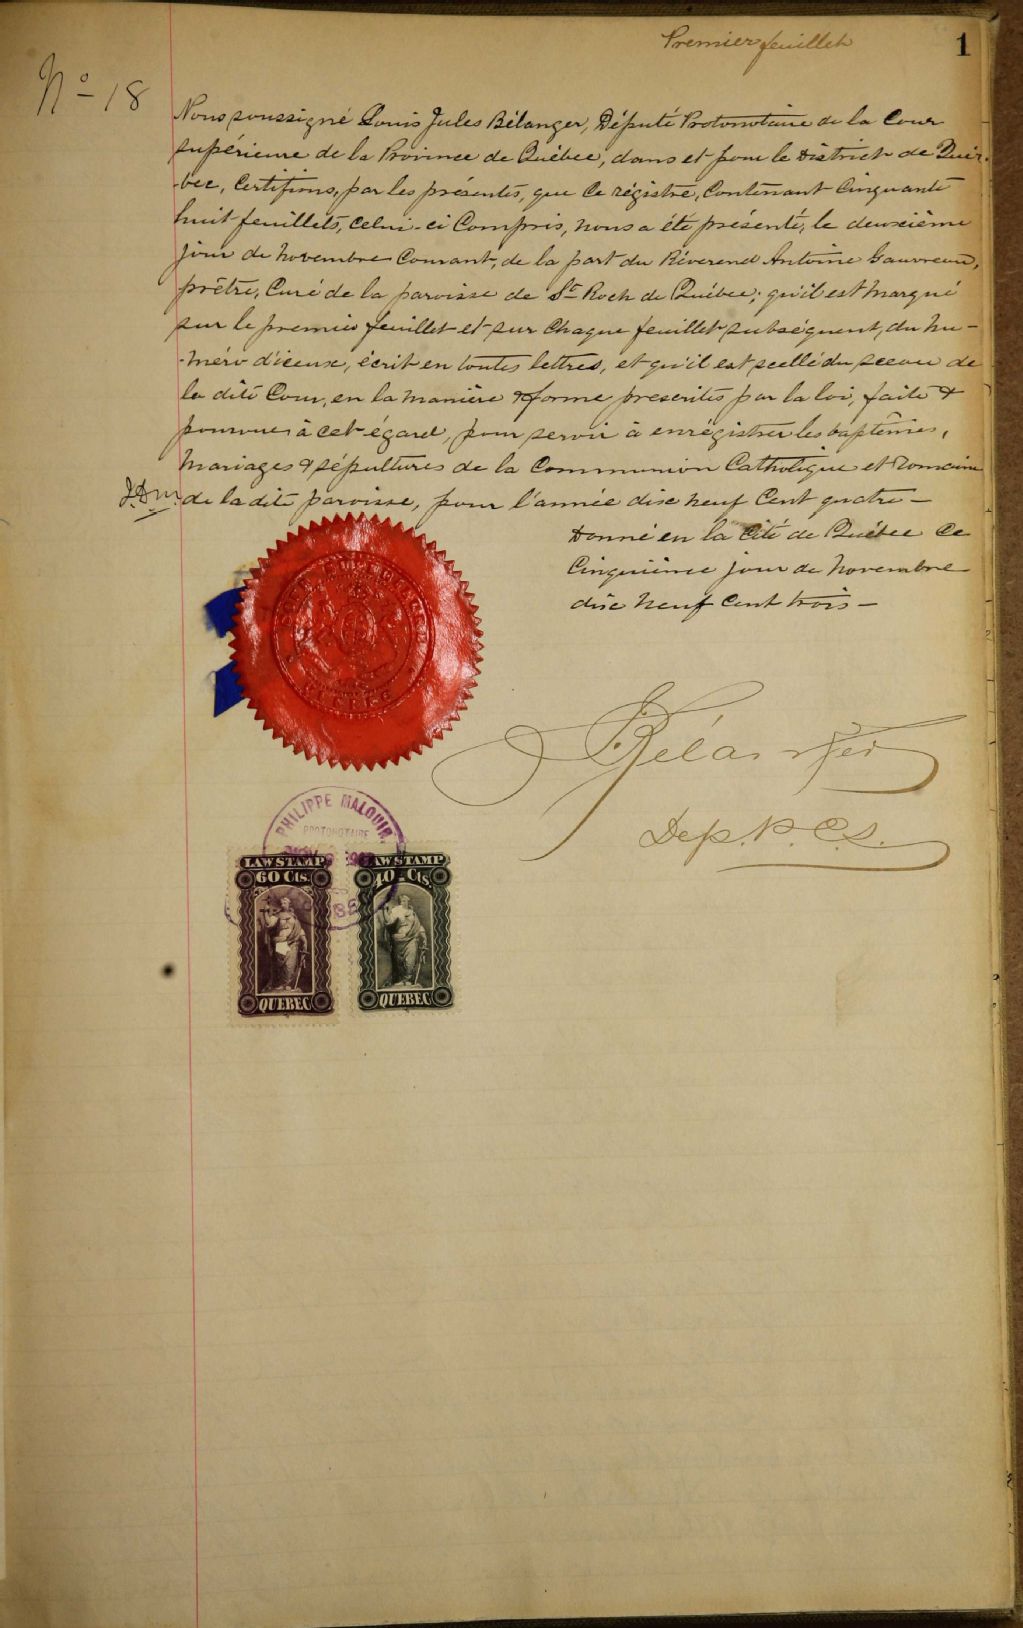 Premier feuillet
1
No 18
Nous soussigné Louis Jules Bélanger, Député Protonotaire de la Cour
supérieure de la Province de Québec, dans et pour le District de Qué-
-bec, Certifions, par les présentes, que ce régistre, Contenant Cinquante
huit feuillets, celui-ci Compris, nous a été présenté, le deuxième
jour de novembre Courant, de la part du Révérend Antoine Gauvreau,
prêtre, Curé de la paroisse de St Roch de Québec; qu'il est marqué
sur le premier feuillet et sur chaque feuillet subséquent, du nu-
-méro d'iceux, écrit en toutes lettres, et qu'il est scellé du sceau de
la dite Cour, en la manière & forme prescrites par la loi, faite &
pourvue à cet égard, pour servir à enrégistrer les baptêmes,
mariages & sépultures de la Communion Catholique et Romaine
de la dite paroisse, pour l'année dix neuf Cent quatre -
Donné en la Cité de Québec ce
Cinquième jour de novembre
dix neuf Cent trois -
Bélanger
Dep. P. C. S.
PHILIPPE MALOUIN
PROTONOTAIRE
LAW STAMP
60 Cts.
QUEBEC
LAW STAMP
40 Cts.
QUEBEC